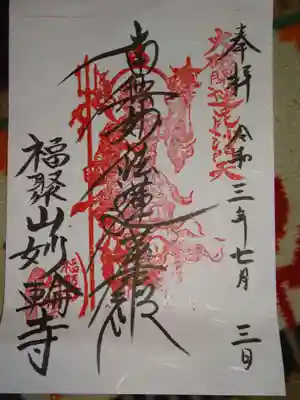 奉拝 令和三年七月三日
大開運毘沙門天
南無妙法蓮華経
福聚山妙輪寺